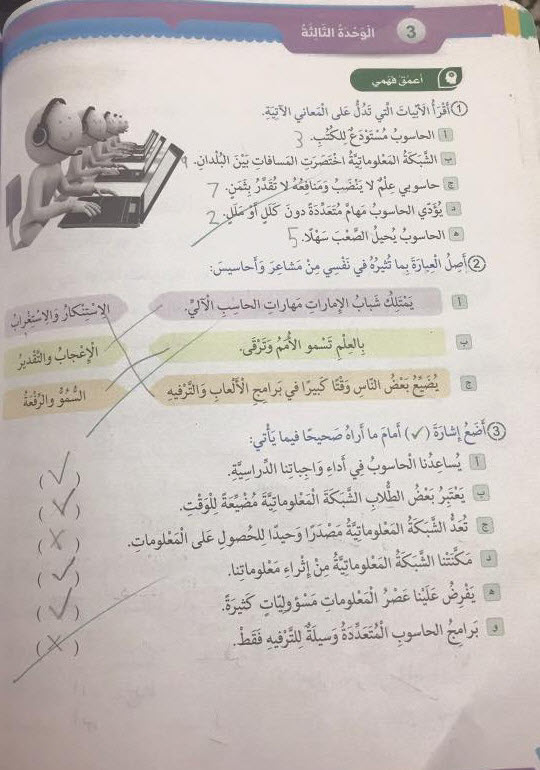 3 الْوَحْدَةُ الثَّالِثَةُ
أعمّق فهمي
1 أَقْرَأُ الْأَبْياتَ الَّتي تَدُلُّ عَلى الْمَعاني الآتِيَةِ.
أ الحاسوبُ مُسْتَوْدَعٌ لِلْكُتُبِ. 3
ب الشَّبَكَةُ المَعْلوماتِيَّةُ اخْتَصَرَتِ المَسافاتِ بَيْنَ البُلْدانِ. 9
ج حاسوبي عِلْمٌ لا يَنْضَبُ وَمَنافِعُهُ لا تُقَدَّرُ بِثَمَنٍ. 7
د يُؤَدّي الحاسوبُ مَهامَّ مُتَعَدِّدَةً دونَ كَلَلٍ أَوْ مَلَلٍ. 2
ه الحاسوبُ يُحيلُ الصَّعْبَ سَهْلًا. 5
2 أَصِلُ الْعِبارَةَ بِما تُثيرُهُ في نَفْسي مِنْ مَشاعِرَ وَأَحاسيسَ:
أ يَمْتَلِكُ شَبابُ الإماراتِ مَهاراتِ الحاسِبِ الْآلِيِّ. الِاسْتِنْكارُ وَالِاسْتِغْرابُ
ب بِالعِلْمِ تَسْمو الأُمَمُ وَتَرْقى. الْإِعْجابُ والتَّقْديرُ
ج يُضَيِّعُ بَعْضُ النّاسِ وَقْتًا كَبيرًا في بَرامِجِ الْأَلْعابِ وَالتَّرْفيهِ السُّمُوُّ والرِّفْعَةُ
3 أَضَعُ إِشارَةَ (✓) أَمامَ ما أَراهُ صَحيحًا فيما يَأْتي:
أ يُساعِدُنا الْحاسوبُ في أَداءِ وَاجِباتِنا الدِّراسِيَّةِ. (✓)
ب يَعْتَبِرُ بَعْضُ الطُّلابِ الشَّبَكَةَ الْمَعْلوماتِيَّةَ مُضْيِعَةً لِلْوَقْتِ. (✓)
ج تُعَدُّ الشَّبَكَةُ المَعْلوماتِيَّةُ مَصْدَرًا وَحيدًا للحُصولِ عَلى الْمَعْلوماتِ. (✗)
د مَكَّنَتْنا الشَّبَكَةُ المَعْلوماتِيَّةُ مِنْ إِثْراءِ مَعْلوماتِنا. (✓)
ه يَفْرِضُ عَلَيْنا عَصْرُ الْمَعْلوماتِ مَسْؤوليّاتٍ كَثيرَةً. (✓)
و بَرامِجُ الحاسوبِ الْمُتَعَدِّدَةُ وَسيلَةٌ لِلتَّرْفيهِ فَقَطْ. (✗)